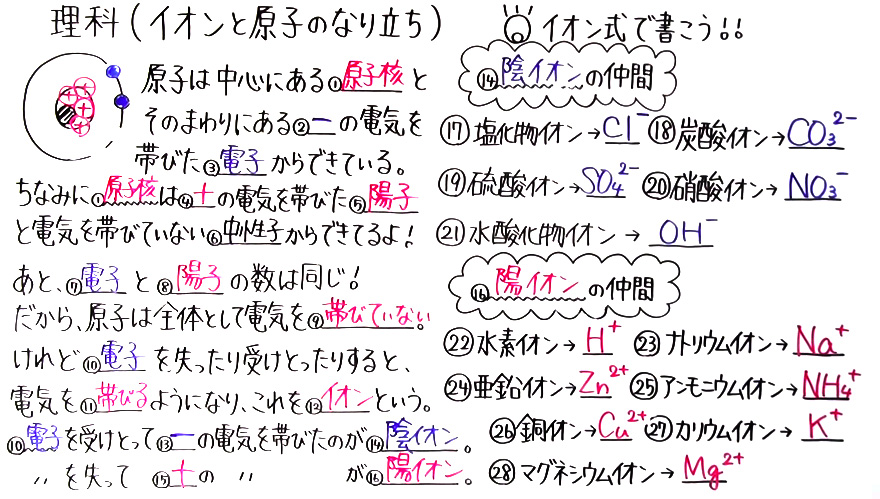 理科(イオンと原子のなり立ち)
原子は中心にある①原子核と
そのまわりにある②ーの電気を
帯びた③電子からできている。
ちなみに①原子核は④+の電気を帯びた⑤陽子
と電気を帯びていない⑥中性子からできてるよ!
あと、⑦電子と⑧陽子の数は同じ!
だから、原子は全体として電気を⑨帯びていない。
けれど⑩電子を失ったり受けとったりすると、
電気を⑪帯びるようになり、これを⑫イオンという。
⑩電子を受けとって⑬ーの電気を帯びたのが⑭陰イオン。
〃を失って⑮+の〃が⑯陽イオン。
イオン式で書こう!!
⑭陰イオンの仲間
⑰塩化物イオン→Cl⁻ ⑱炭酸イオン→CO₃²⁻
⑲硫酸イオン→SO₄²⁻ ⑳硝酸イオン→NO₃⁻
㉑水酸化物イオン→OH⁻
⑯陽イオンの仲間
㉒水素イオン→H⁺ ㉓ナトリウムイオン→Na⁺
㉔亜鉛イオン→Zn²⁺ ㉕アンモニウムイオン→NH₄⁺
㉖銅イオン→Cu²⁺ ㉗カリウムイオン→K⁺
㉘マグネシウムイオン→Mg²⁺